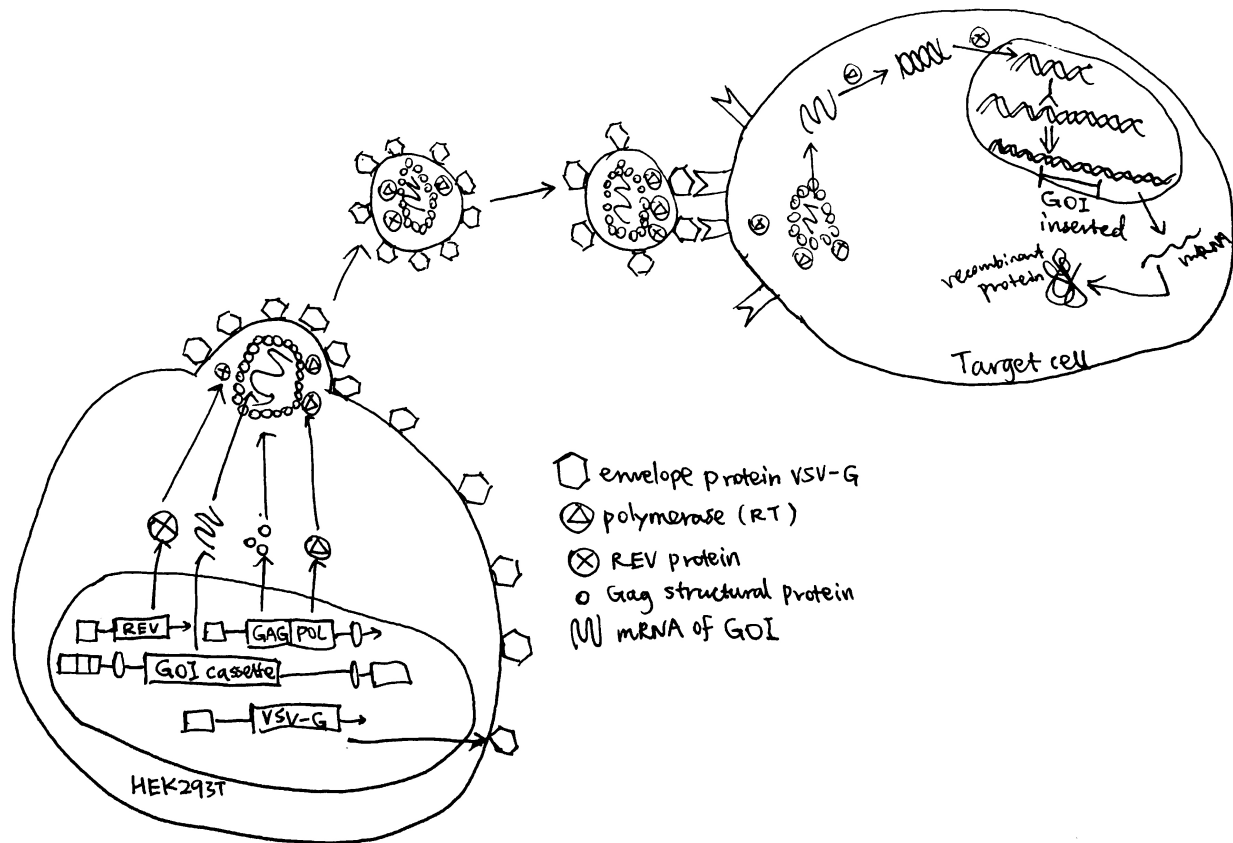 GOI
inserted
mRNA
recombinant
protein
Target cell
envelope protein VSV-G
polymerase (RT)
REV protein
Gag structural protein
mRNA of GOI
REV
GAG POL
GOI cassette
VSV-G
HEK293T